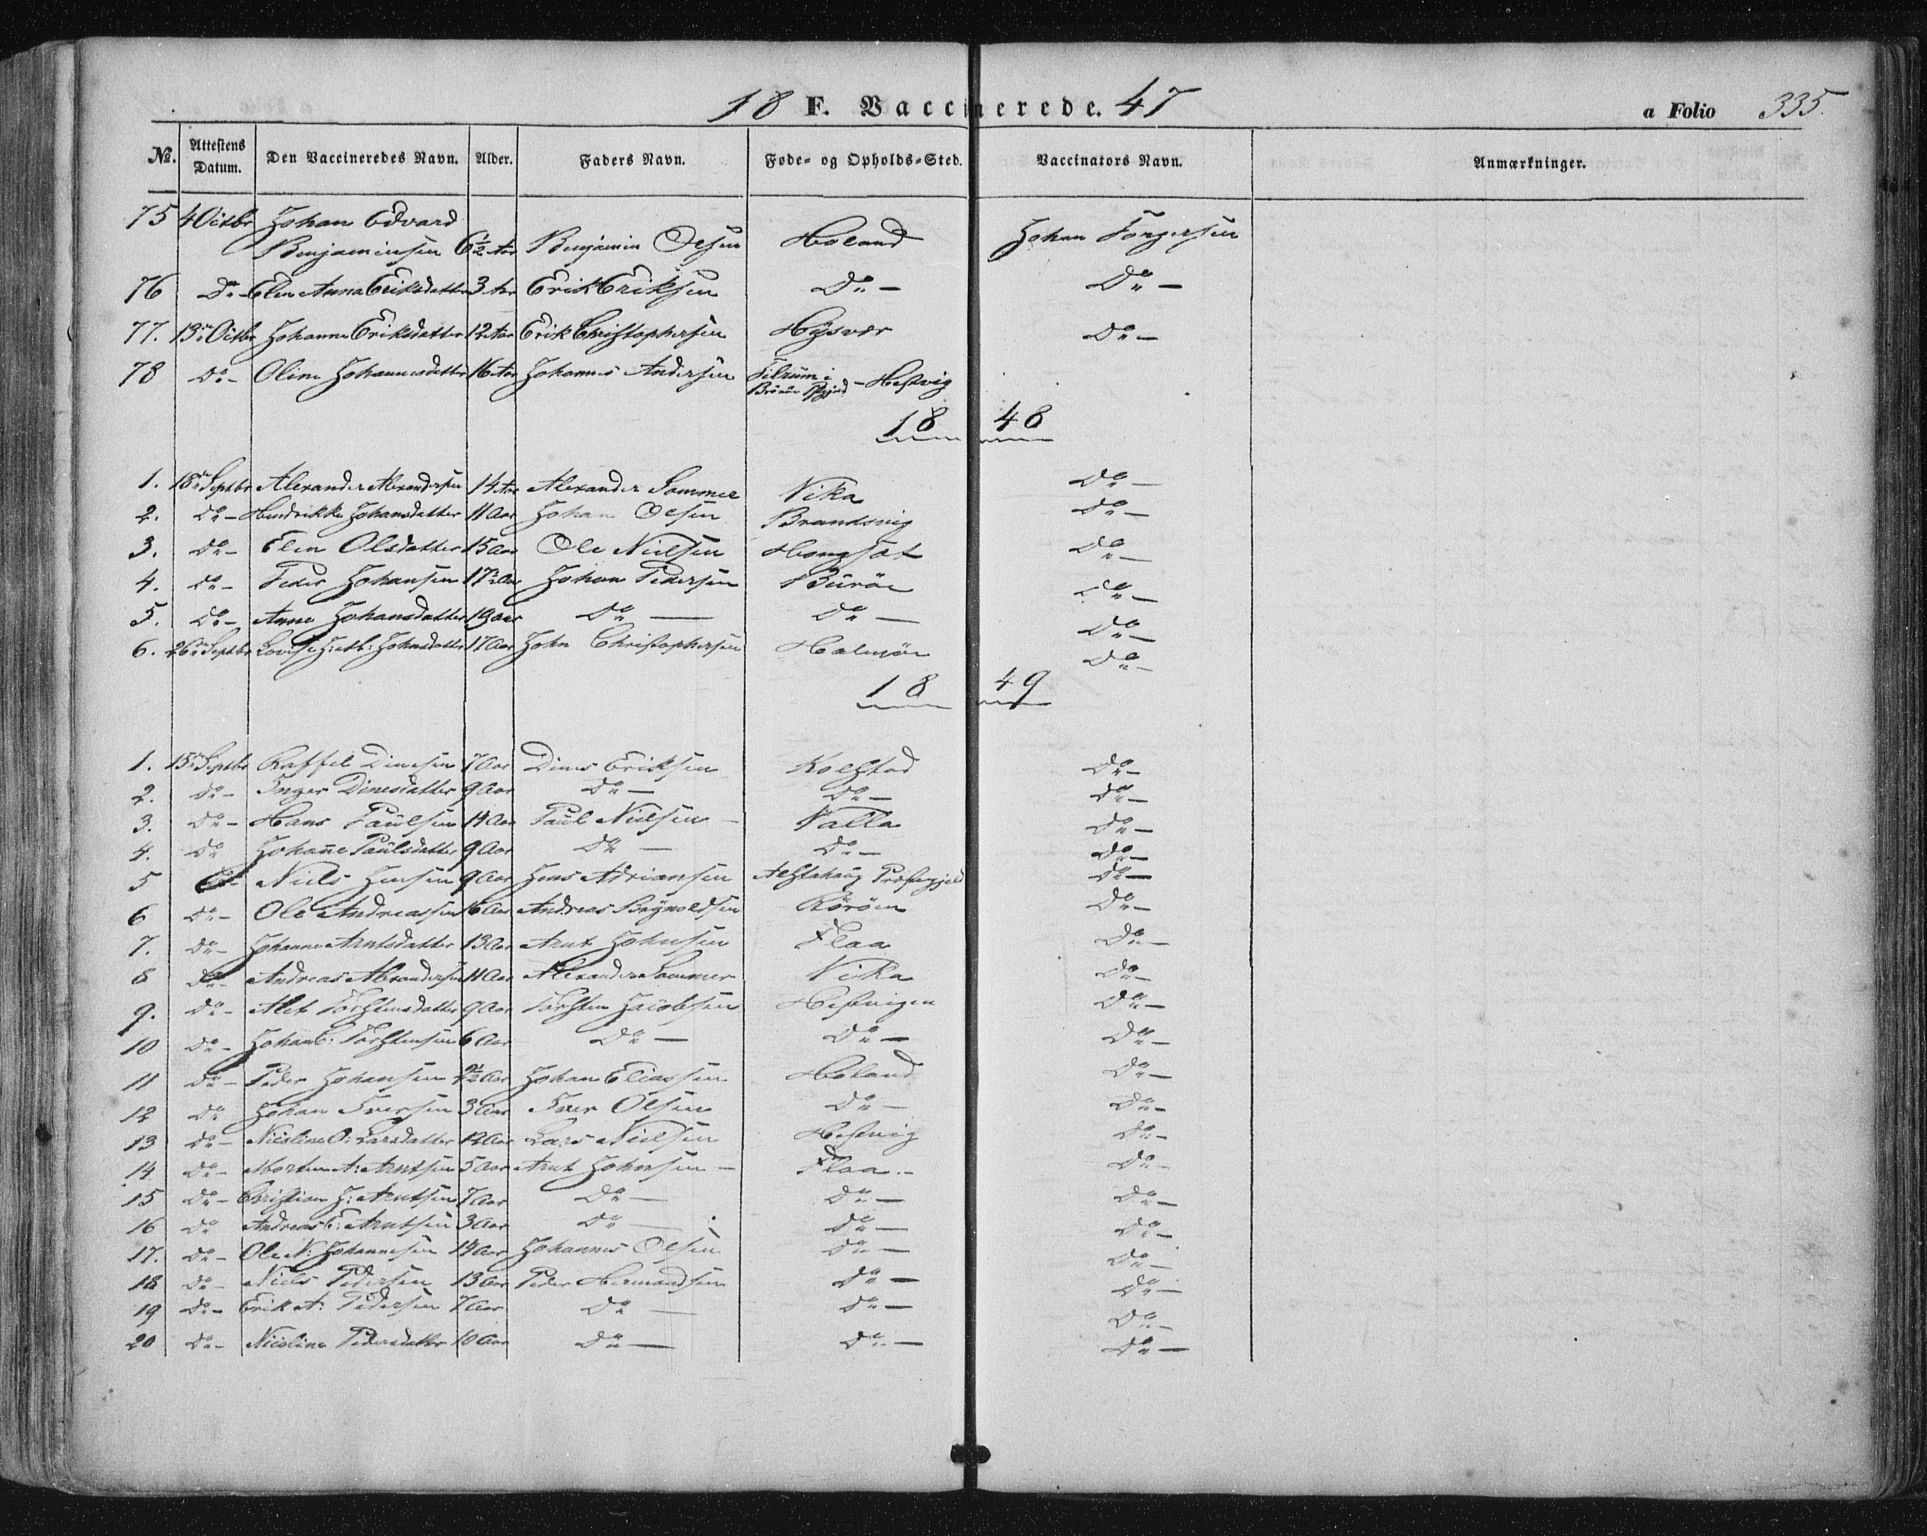 18 F. Vaccinerede. 47 a Folio 335.
No. Attestens Datum. Den Vaccineredes Navn. Alder. Faders Navn. Føde- og Opholds-Sted. Vaccinators Navn. Anmærkninger.
75 4 Octbr Johan Edvard
Benjaminsen 6½ Aar Benjamin Olsen Høland Johan Torgersen
76 Do - Elen Anna Eriksdatter 3 Aar Erik Eriksen Do - Do -
77. 13de Octbr Johanna Eriksdatter 12 Aar Erik Christophersen Høysvær Do -
78 Do - Oline Johannesdatter 16 Aar Johannes Andersen Tilrum i Brønøe Pgjeld - Hestvig
18 48
1. 18de Septbr Alexander Alexandersen 14 Aar Alexander Sommer Vika Do -
2. Do - Hendrikke Johansdatter 11 Aar Johan Olsen Brandsvig Do -
3. Do - Elen Olsdatter 15 Aar Ole Nielsen Hongsæt Do -
4. Do - Peder Johansen 17½ Aar Johan Pedersen Burøe Do -
5. Do - Anne Johansdatter 19 Aar Do - Do - Do -
6. 26de Septbr Lovise Johnsdatter 17 Aar John Christophersen Halmøe Do -
18 49
1. 15de Septbr Raffel Dinesen 7 Aar Dines Eriksen Kolstad Do -
2. Do - Inger Dinesdatter 9 Aar Do - Do - Do -
3. Do - Hans Paulsen 14 Aar Paul Nielsen - Valla Do -
4. Do Johanne Paulsdatter 9 Aar Do - Do - Do -
5 Do - Niels Jensen 9 Aar Jens Adriansen Alstahaug Præstegjeld Do -
6 Do - Ole Andreassen 16 Aar Andreas Brynoldsen Rørøen Do -
7. Do - Johanna Arntsdatter 13 Aar Arnt Johnsen Flaa Do -
8 Do - Andreas Alexandersen 11 Aar Alexander Sommer Vika Do -
9. Do - Alet Torstensdatter 9 Aar Torsten Jacobsen Hestvigen Do -
10 Do - Johan C: Torstensen 6 Aar Do - Do - Do -
11 Do - Peder Johansen 9½ Aar Johan Eliassen Høland Do -
12 Do Johan Iversen 3 Aar Iver Olsen Do - Do -
13 Do - Nicoline O: Larsdatter 12 Aar Lars Nielsen Hestvig Do -
14 Do - Morten A: Arntsen 5 Aar Arnt Johnsen - Flaa - Do -
15 Do - Christian J: Arntsen 7 Aar Do - Do - Do -
16 Do Andreas E: Arntsen 3 Aar Do - Do - Do -
17. Do - Ole N: Johannesen 14 Aar Johannes Olsen Do - Do -
18 Do - Niels Pedersen 13 Aar Peder Hermandsen Do - Do -
19 Do - Erik A: Pedersen 7 Aar Do - Do - Do -
20 Do - Nicoline Pedersdatter 10 Aar Do - Do - Do -